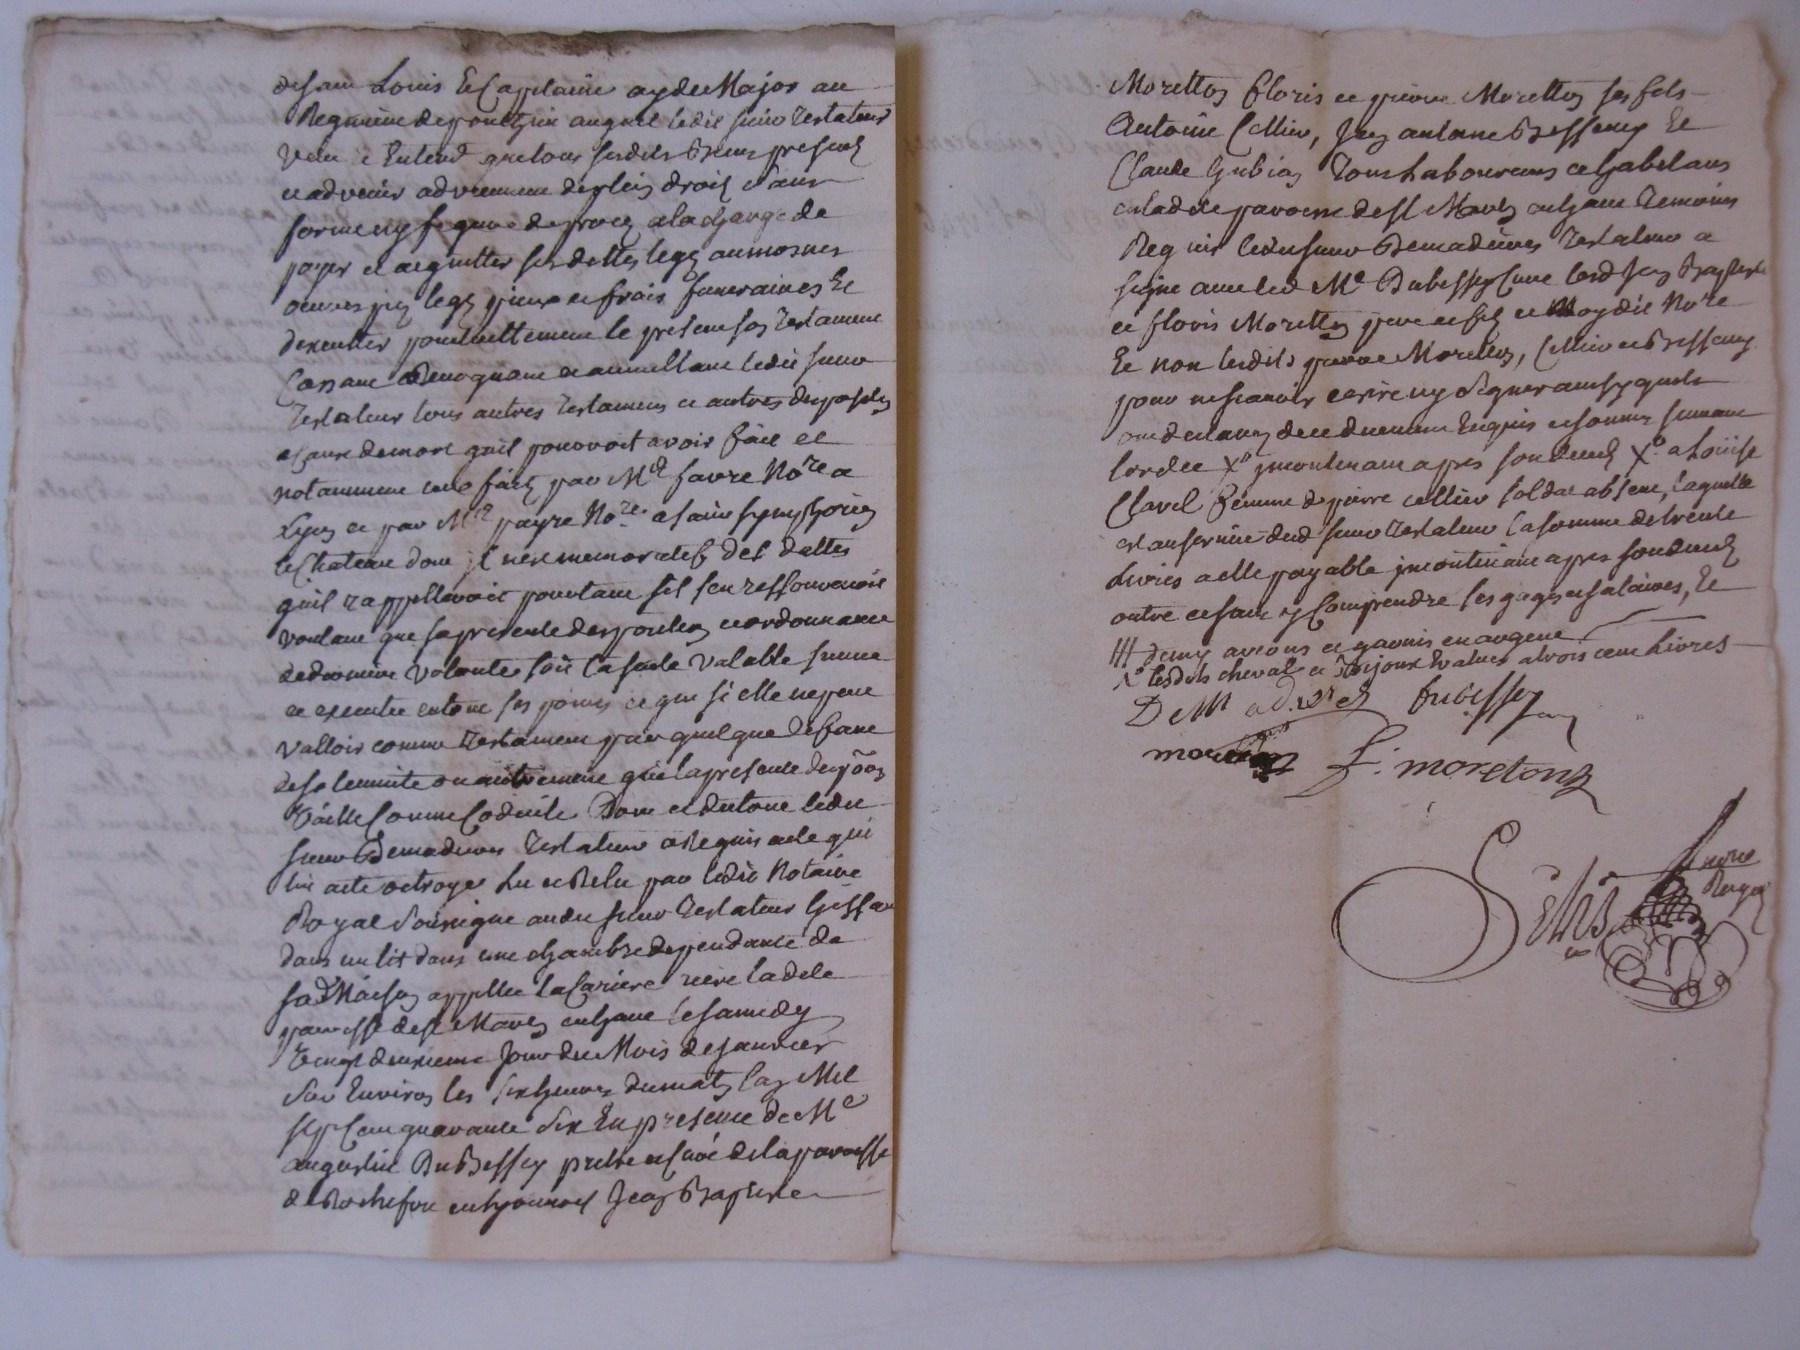 de saint Louis Et Capitaine ayde Major au
Regiment de ponthieu auquel ledit sieur Testateur
veut et Entend que tous sesdits Biens presents
et advenir adviennent de plein droit sans
forme ny figure de proces a la charge de
payer et acquitter ses dettes legs aumosnes
œuvres pies legs pieux et frais funeraires Et
dexecuter ponctuellement le present son Testament
Cassant Revoquant et annullant ledit sieur
Testateur tous autres Testamens et autres disposon
a cause de mort quil pouvoit avoir fait et
notamment ceux faits par Me favre Nore a
Lyon et par Me payre Nore a saint symphorien
le Chateau dont il nest memoratif des dattes
quil rappelleroit pourtant sil sen ressouvenoit
voulant que sa presente disposition et ordonnance
de derniere volonté soit la seule valable suivie
et executée en tous ses points et que si elle ne peut
valloir comme Testament par quelque deffaut
de solemnité ou autrement que la presente disposon
Vaille Comme Codicile Dont et du tout ledit
sieur Demadieres Testateur a Requis acte qui
luy a été octroyé Lu et Relu par ledit Notaire
Royal soussigné audit sieur Testateur Gissant
dans un lit dans une chambre dependante de
sad Maison appellée la Cariere riere ladite
paroisse de st Martin en haut le samedy
vingt deuxieme Jour du Mois de Janvier
sur Environ les six heures du matin lan Mil
sept Cent quarante six En presence de Me
augustin DuBessey pretre et curé de la paroisse
de Rochefort en lyonnois Jean Baptiste
Moretton floris et pierre Moretton ses fils
Antoine Cellier, Jean antoine Bessenay Et
Claude Gubian Tous Laboureurs et habitans
en ladite paroisse de st Martin en haut Temoins
Requis ledit sieur Demadieres Testateur a
signé avec led Me Dubessey Curé lesd Jean Baptiste
et floris Moretton pere et fils et Moydit Nore
Et non lesdits pierre Moretton, Cellier et Bessenay
pour ne scavoir ecrire ny signer ainsy quils
ont declaré de ce duement Enquis et sommés suivant
lordce Xo incontinant apres son deceds Xo a Loüise
Clavel femme de pierre cellier soldat absent, laquelle
est au service dud sieur Testateur la somme de trente
Livres a elle payable incontinant apres son deceds
outre et sans y Comprendre ses gages et salaires, Et
lesdits cheval et Bijoux Evalués a trois cent Livres
Demadieres Dubessey
moretton F. moretton